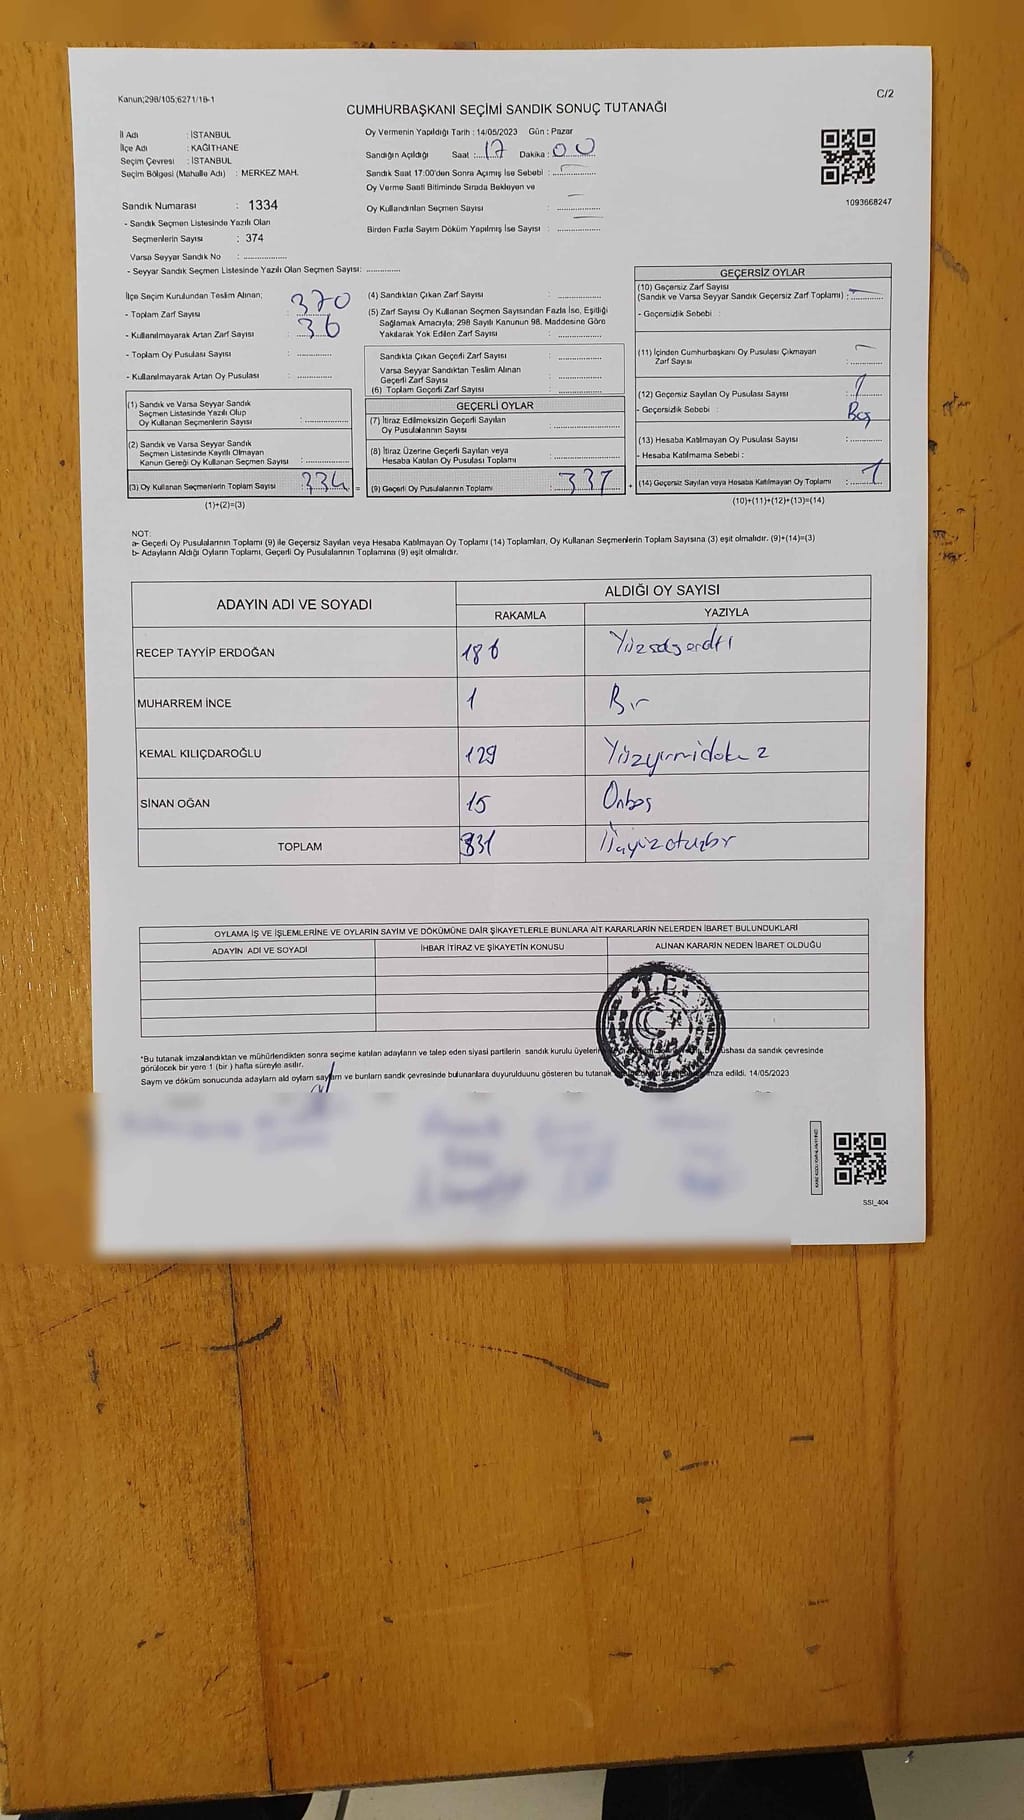 Kanun;298/105;6271/18-1
C/2
CUMHURBAŞKANI SEÇİMİ SANDIK SONUÇ TUTANAĞI
İl Adı : İSTANBUL
İlçe Adı : KAĞITHANE
Seçim Çevresi : İSTANBUL
Seçim Bölgesi (Mahalle Adı) : MERKEZ MAH.
Sandık Numarası : 1334
- Sandık Seçmen Listesinde Yazılı Olan
Seçmenlerin Sayısı : 374
Varsa Seyyar Sandık No : ..............
- Seyyar Sandık Seçmen Listesinde Yazılı Olan Seçmen Sayısı: ............
Oy Vermenin Yapıldığı Tarih : 14/05/2023 Gün : Pazar
Sandığın Açıldığı Saat : 17 Dakika : 00
Sandık Saat 17:00'den Sonra Açımış İse Sebebi : ..............
Oy Verme Saati Bitiminde Sırada Bekleyen ve
Oy Kullandırılan Seçmen Sayısı : ..............
Birden Fazla Sayım Döküm Yapılmış İse Sayısı : ..............
1093668247
İlçe Seçim Kurulundan Teslim Alınan;
- Toplam Zarf Sayısı : 370
- Kullanılmayarak Artan Zarf Sayısı : 36
- Toplam Oy Pusulası Sayısı : ............
- Kullanılmayarak Artan Oy Pusulası : ............
(1) Sandık ve Varsa Seyyar Sandık
Seçmen Listesinde Yazılı Olup
Oy Kullanan Seçmenlerin Sayısı : ..............
(2) Sandık ve Varsa Seyyar Sandık
Seçmen Listesinde Kayıtlı Olmayan
Kanun Gereği Oy Kullanan Seçmen Sayısı : ..............
(3) Oy Kullanan Seçmenlerin Toplam Sayısı : 334 =
(1)+(2)=(3)
(4) Sandıktan Çıkan Zarf Sayısı : ..............
(5) Zarf Sayısı Oy Kullanan Seçmen Sayısından Fazla İse, Eşitliği
Sağlamak Amacıyla; 298 Sayılı Kanunun 98. Maddesine Göre
Yakılarak Yok Edilen Zarf Sayısı : ..............
Sandıkta Çıkan Geçerli Zarf Sayısı : ..............
Varsa Seyyar Sandıktan Teslim Alınan
Geçerli Zarf Sayısı : ..............
(6) Toplam Geçerli Zarf Sayısı : ..............
GEÇERLİ OYLAR
(7) İtiraz Edilmeksizin Geçerli Sayılan
Oy Pusulalarının Sayısı : ..............
(8) İtiraz Üzerine Geçerli Sayılan veya
Hesaba Katılan Oy Pusulası Toplamı : ..............
(9) Geçerli Oy Pusulalarının Toplamı : 337 +
GEÇERSİZ OYLAR
(10) Geçersiz Zarf Sayısı
(Sandık ve Varsa Seyyar Sandık Geçersiz Zarf Toplamı) : ............
- Geçersizlik Sebebi :
(11) İçinden Cumhurbaşkanı Oy Pusulası Çıkmayan
Zarf Sayısı : ............
(12) Geçersiz Sayılan Oy Pusulası Sayısı : 1
- Geçersizlik Sebebi : Boş
(13) Hesaba Katılmayan Oy Pusulası Sayısı : ............
- Hesaba Katılmama Sebebi :
(14) Geçersiz Sayılan veya Hesaba Katılmayan Oy Toplamı : 1
(10)+(11)+(12)+(13)=(14)
NOT:
a- Geçerli Oy Pusulalarının Toplamı (9) ile Geçersiz Sayılan veya Hesaba Katılmayan Oy Toplamı (14) Toplamları, Oy Kullanan Seçmenlerin Toplam Sayısına (3) eşit olmalıdır. (9)+(14)=(3)
b- Adayların Aldığı Oyların Toplamı, Geçerli Oy Pusulalarının Toplamına (9) eşit olmalıdır.
ADAYIN ADI VE SOYADI
ALDIĞI OY SAYISI
RAKAMLA YAZIYLA
RECEP TAYYİP ERDOĞAN 186 Yüzseksenaltı
MUHARREM İNCE 1 Bir
KEMAL KILIÇDAROĞLU 129 Yüzyirmidokuz
SİNAN OĞAN 15 Onbeş
TOPLAM 331 Üçyüzotuzbir
OYLAMA İŞ VE İŞLEMLERİNE VE OYLARIN SAYIM VE DÖKÜMÜNE DAİR ŞİKAYETLERLE BUNLARA AİT KARARLARIN NELERDEN İBARET BULUNDUKLARI
ADAYIN ADI VE SOYADI İHBAR İTİRAZ VE ŞİKAYETİN KONUSU ALINAN KARARIN NEDEN İBARET OLDUĞU
*Bu tutanak imzalandıktan ve mühürlendikten sonra seçime katılan adayların ve talep eden siyasi partilerin sandık kurulu üyelerine da sandık çevresinde
görülecek bir yere 1 (bir ) hafta süreyle asılır.
Sayım ve döküm sonucunda adayların ald oyların sayların ve bunların sandk çevresinde bulunanlara duyurulduunu gösteren bu tutanak imza edildi. 14/05/2023
SSI_404